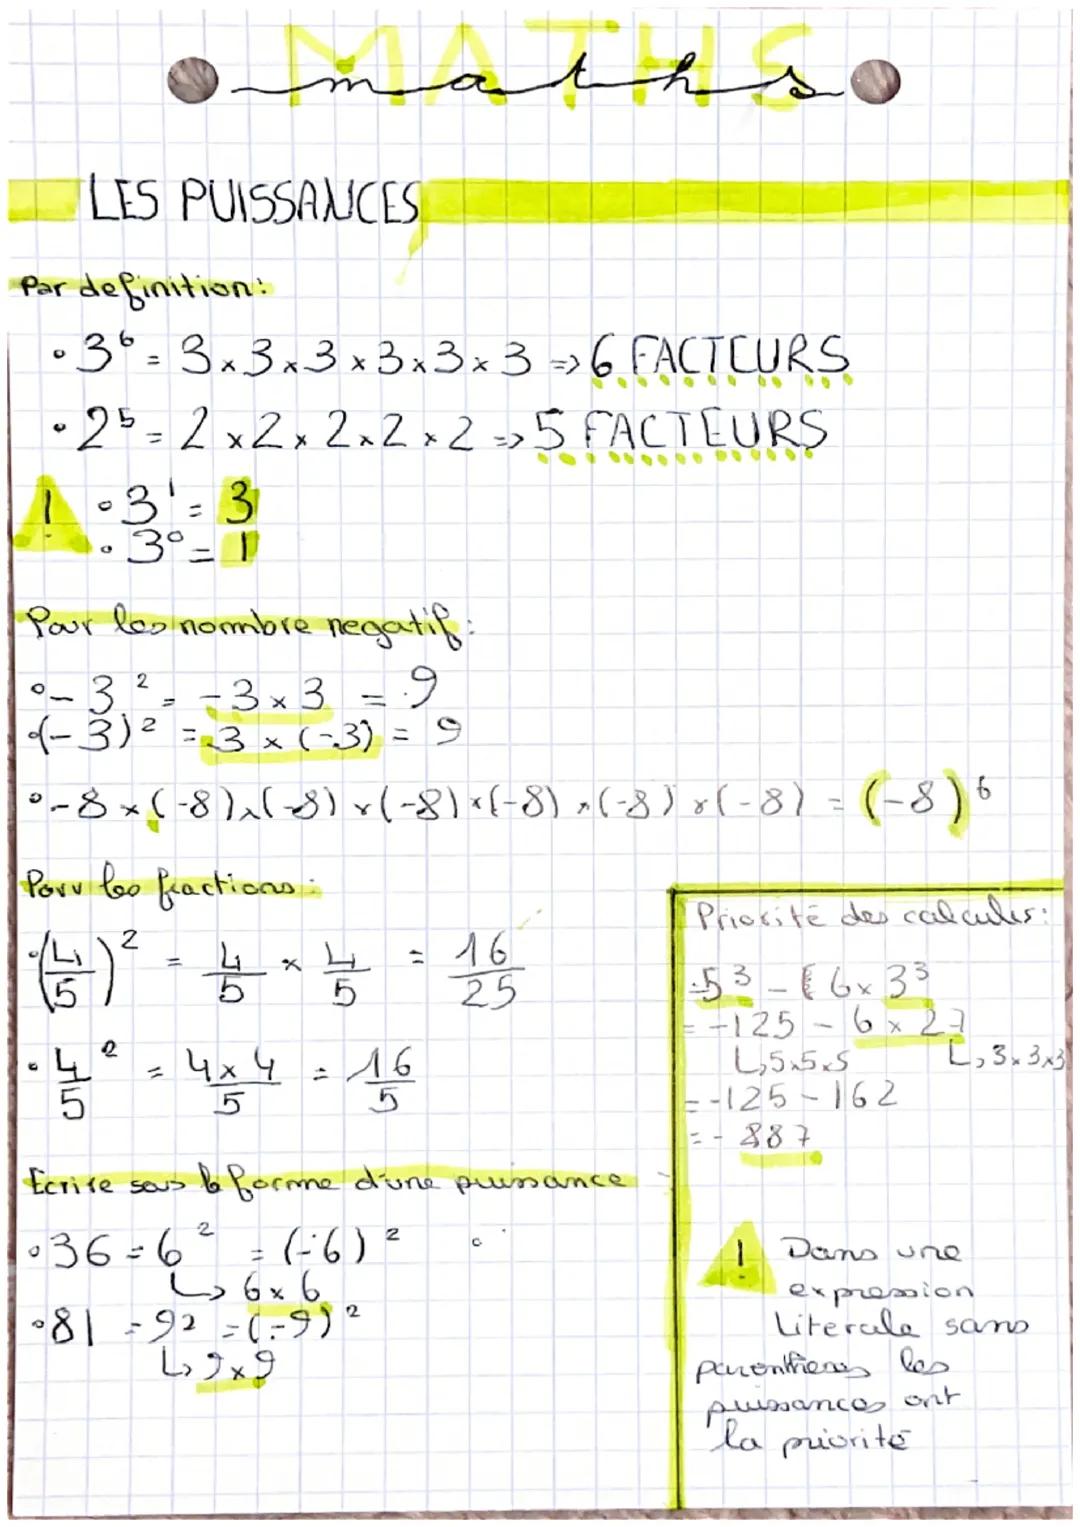 MATHS
maths
LES PUISSANCES
Par definition:
• 3⁶ = 3 x 3 x 3 x 3 x 3 x 3 => 6 FACTEURS
• 2⁵ = 2 x 2 x 2 x 2 x 2 => 5 FACTEURS
! • 3¹ = 3
• 3⁰ = 1
Pour les nombre negatif:
• - 3² = - 3 x 3 = -9
• (-3)² = -3 x (-3) = 9
• -8 x (-8) x (-8) x (-8) x (-8) x (-8) x (-8) = (-8)⁶
Pour les fractions:
• (4/5)² = 4/5 x 4/5 = 16/25
• 4²/5 = 4 x 4/5 = 16/5
Ecrire sous la forme d'une puissance
• 36 = 6² = (-6)²
↳ 6 x 6
• 81 = 92 = (-9)²
↳ 9 x 9
Priorité des calculs:
-5³ - 6 x 3³
= -125 - 6 x 27
↳ 5x5x5 ↳ 3x3x3
= -125 - 162
= - 287
! Dans une
expression
Literale sans
parentheses les
puissances ont
la priorité